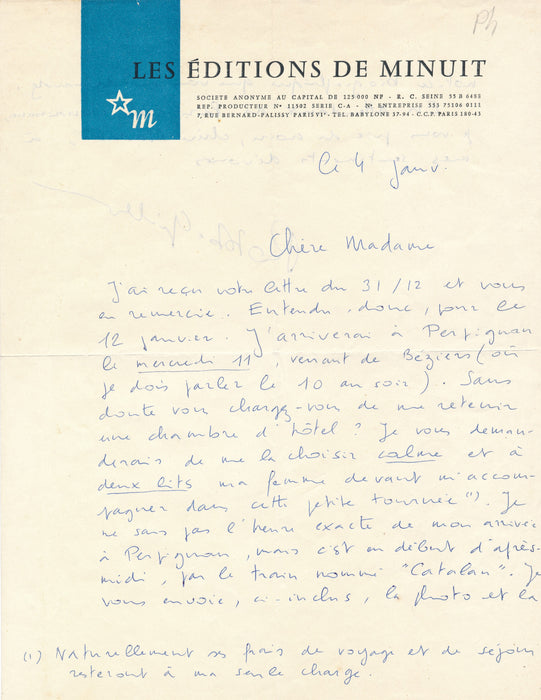 Ph
LES ÉDITIONS DE MINUIT
SOCIETE ANONYME AU CAPITAL DE 125 000 NF - R. C. SEINE 55 B 6488
REP. PRODUCTEUR N° 11502 SERIE C-A - N° ENTREPRISE 555 75106 0111
7, RUE BERNARD-PALISSY PARIS VIe - TEL. BABYLONE 37-94 - C.C.P. PARIS 180-43
m
Ce 4 janv.
Chère Madame
J'ai reçu votre lettre du 31/12 et vous
en remercie. Entendu donc, pour le
12 janvier. J'arriverai à Perpignan
le mercredi 11, venant de Béziers (où
je dois parler le 10 au soir). Sans
doute vous chargez-vous de me retenir
une chambre d'hôtel ? Je vous deman-
derais de me la choisir calme et à
deux lits ma femme devant m'accom-
pagner dans cette petite tournée (1). Je
ne sais pas l'heure exacte de mon arrivée
à Perpignan, mais c'est en début d'après-
midi, par le train nommé "Catalan". Je
vous envoie, ci-inclus, la photo et la
(1) Naturellement ses frais de voyage et de séjour
resteront à ma seule charge.